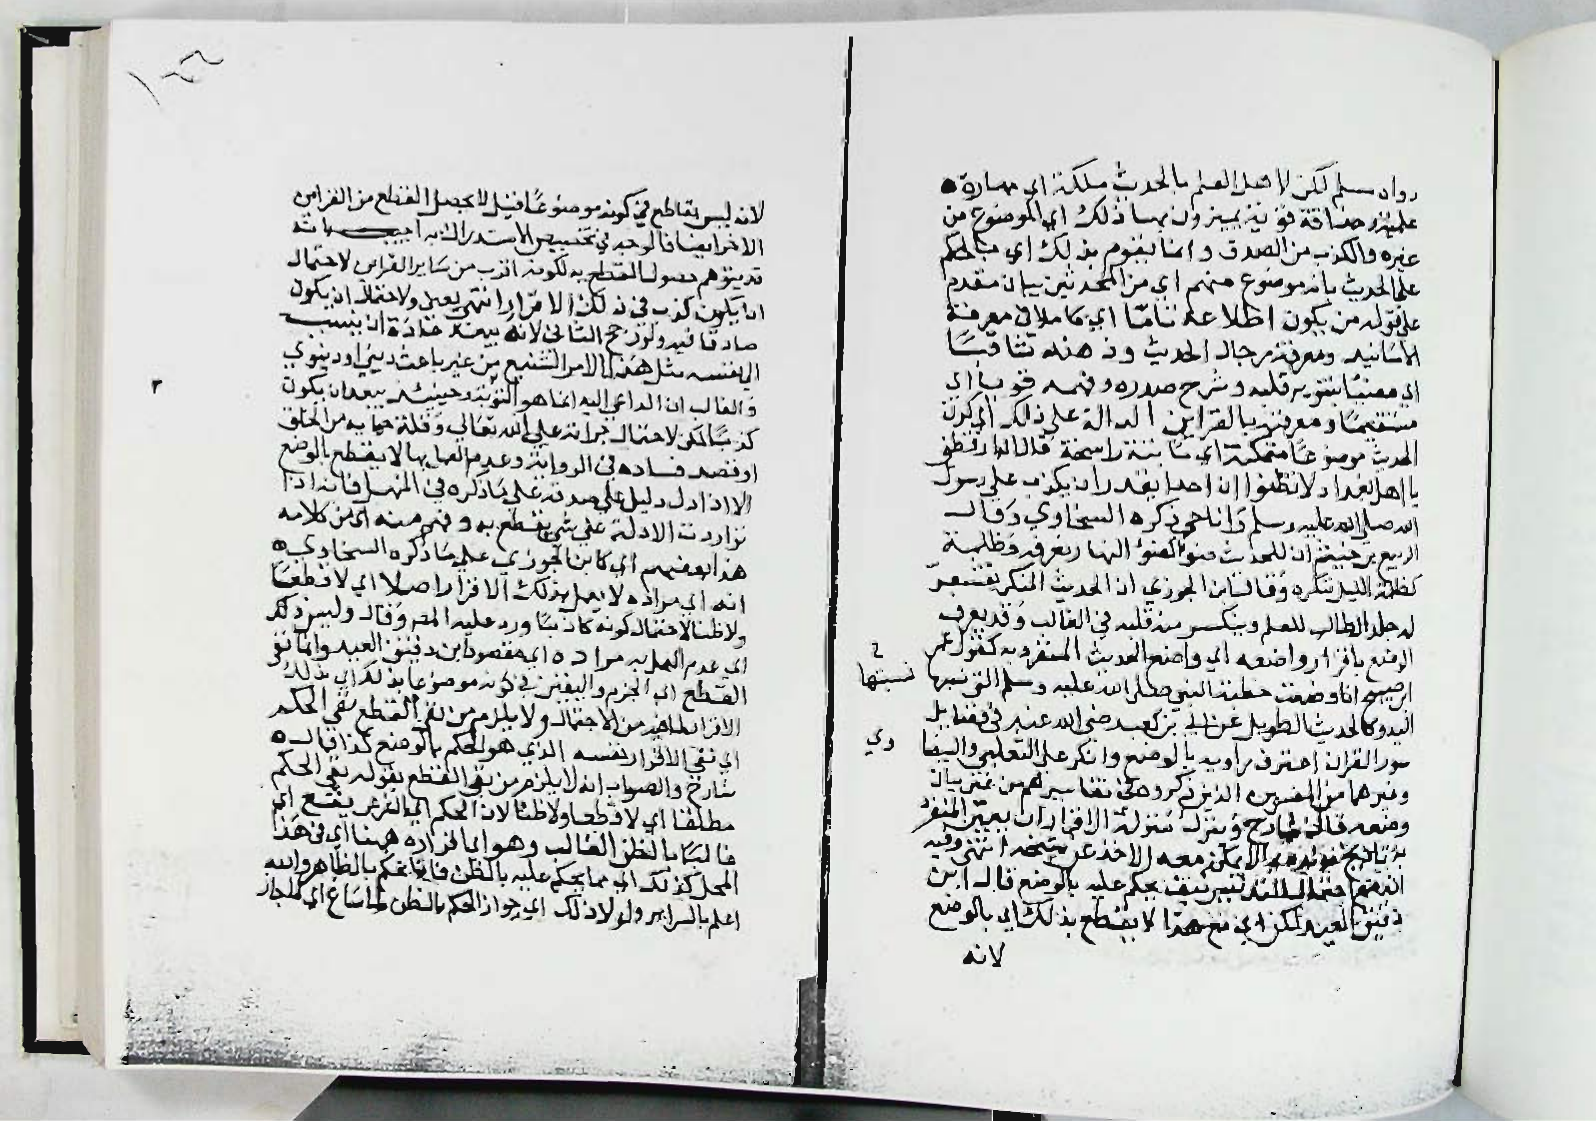 رواه مسلم لكن لاهل العلم بالحديث ملكة اي مهارة
علمية وحذاقة قوية يميزون بها ذلك اي الموضوع من
غيره والكذب من الصدق وانما يقوم بذلك اي بالحكم
على الحديث بانه موضوع منهم اي من المحدثين بيان مقدم
على قوله من يكون اطلاعه تامّا اي كاملا في معرفة
الاسانيد ومعرفة رجال الحديث وذهنه ثاقبًا
اي مضيئا بتنوير قلبه وشرح صدره وفهمه قويا اي
مستقيما ومعرفته بالقراين الدالة على ذلك اي كون
الحديث موضوعًا متمكنة اي ثابتة راسخة قال الدارقطني
يا اهل بغداد لا تظنوا ان احدا يقدر ان يكذب على رسول
الله صلى الله عليه وسلم وانا حي ذكره السخاوي وقال
الربيع بن خيثم ان للحديث ضوءًا كضوء النهار يعرفه وظلمة
كظلمة الليل تنكره وقال ابن الجوزي ان الحديث المنكر يقشعرّ
له جلد الطالب للعلم وينكسر منه قلبه في الغالب وقد يعرف
الوضع باقرار واضعه اي واضع الحديث المتفرد به كقول عمر
ابن صبيح انا وضعت خطبة النبي صلى الله عليه وسلم التي نسبها
نسبتها
اليه وكالحديث الطويل عن ابي بن كعب رضي الله عنه في فضايل
سور القران اعترف راويه بالوضع وانكر على الثعلبي والبيضا
وي
وغيرهما من المفسرين الذين ذكروه في تفاسيرهم من غير بيان
وضعه قال شارح وينزل منزلة الاقرار ان يعين المنفرد
به تاريخ مولده بما لا يمكن معه الاخذ عن شيخه انتهى وفيه
يحكم عليه بالوضع قال ابن
دقيق العيد لكن اي مع هذا لا يقطع بذلك اي بالوضع
لانه
لانه ليس بقاطع في كونه موضوعًا قيل لا يحصل القطع من القراين
الاخر ايضا فالوجه في تخصيص الاستدراك به اجيب بانه
قد يتوهم حصول القطع به لكونه اقرب من ساير القراين لاحتمال
ان يكون كذب في ذلك الاقرار انتهى يعني ولاحتمال ان يكون
صادقا فيه ولو رُجّح الثاني لانه يبعد عادة ان ينسب
الى نفسه مثل هذا الامر الشنيع من غير باعث ديني او دنيوي
والغالب ان الداعي اليه انما هو التوبة وحينئذ يبعد ان يكون
كذبًا لكن لاحتمال جراته على الله تعالى وقلة حيايه من الخلق
او قصد فساده في الرواية وعدم العمل بها لا يقطع بالوضع
الا اذا دل دليل على صدقه على ما ذكره في المنهل فانه اذا
تواردت الادلة على شي يقطع به وفهم منه اي من كلامه
هذا بعضهم اي كابن الجوزي على ما ذكره السخاوي
انه اي مراده لا يعمل بذلك الاقرار اصلا اي لا قطعًا
ولا ظنا لاحتمال كونه كاذبًا ورد عليه المص وقال وليس ذلك
اي عدم العمل به مراده اي مقصود ابن دقيق العيد وانما نفى
القطع اي الجزم واليقين في كونه موضوعا بذلك اي بذلك
الاقرار لما فيه من الاحتمال ولا يلزم من نفي القطع نفي الحكم
اي نفي الاقرار نفسه الذي هو الحكم بالوضع كذا قاله
شارح والصواب انه لا يلزم من نفي القطع بقوله نفي الحكم
مطلقا اي لا قطعا ولا ظنا لان الحكم اي الشرعي يقع اي
غالبًا بالظن الغالب وهو اي اقراره ههنا اي في هذا
المحل كذلك اي مما يحكم عليه بالظن فانا نحكم بالظاهر والله
اعلم بالسراير ولولا ذلك اي جواز الحكم بالظن لما ساغ اي لما جاز